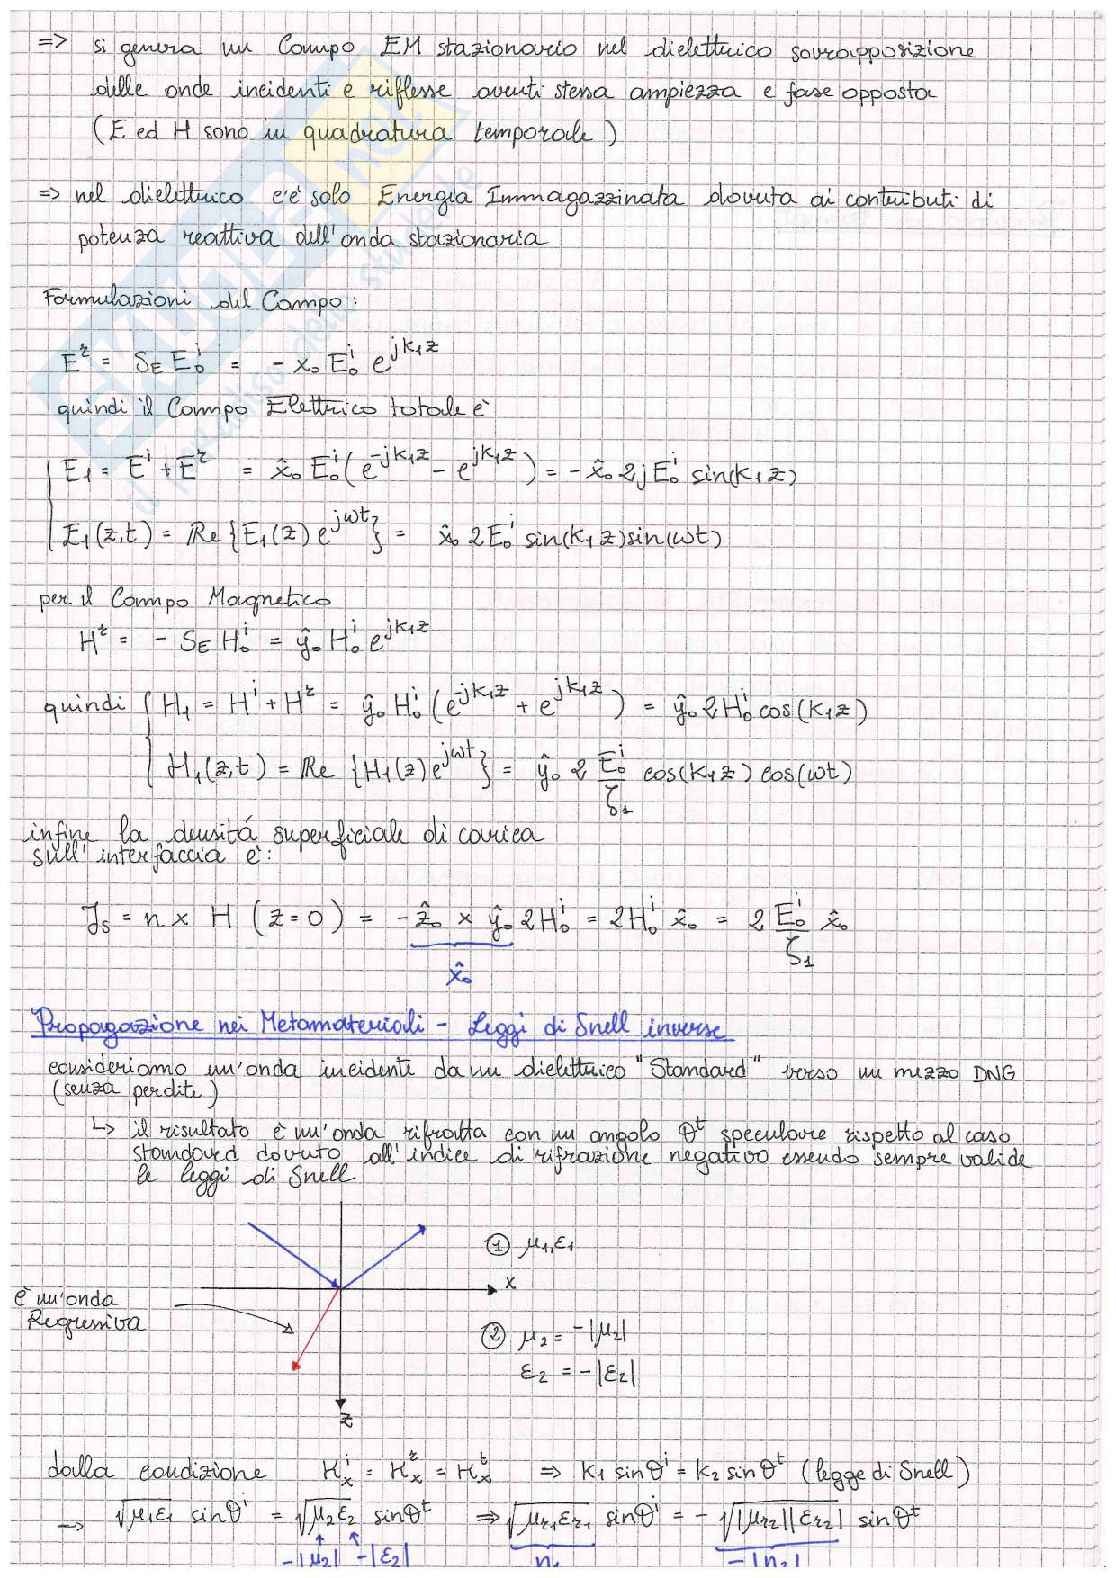 => si genera un Campo EM stazionario nel dielettrico sovrapposizione
delle onde incidenti e riflesse aventi stessa ampiezza e fase opposta
(E ed H sono in quadratura temporale)
=> nel dielettrico c'è solo Energia Immagazzinata dovuta ai contributi di
potenza reattiva dell'onda stazionaria
Formulazioni del Campo:
E^r = S_E E_0^i = - x_0 E_0^i e^{jk_1z}
quindi il Campo Elettrico totale è
E_1 = E^i + E^r = x̂_0 E_0^i (e^{-jk_1z} - e^{jk_1z}) = - x̂_0 2j E_0^i sin(k_1z)
E_1(z,t) = Re {E_1(z) e^{jωt}} = x̂_0 2E_0^i sin(k_1z) sin(ωt)
per il Campo Magnetico
H^r = - S_E H_0^i = ŷ_0 H_0^i e^{jk_1z}
quindi { H_1 = H^i + H^r = ŷ_0 H_0^i (e^{-jk_1z} + e^{jk_1z}) = ŷ_0 2H_0^i cos(k_1z)
H_1(z,t) = Re {H_1(z) e^{jωt}} = ŷ_0 2 E_0^i/ζ_1 cos(k_1z) cos(ωt)
infine la densitá superficiale di carica
sull'interfaccia è:
J_s = n x H (z=0) = -ẑ_0 × ŷ_0 2H_0^i = 2H_0^i x̂_0 = 2 E_0^i/ζ_1 x̂_0
x̂_0
Propagazione nei Metamateriali - Leggi di Snell inverse
consideriamo un'onda incidente da un dielettrico "Standard" verso un mezzo DNG
(senza perdite)
↳ il risultato è un'onda rifratta con un angolo θ^t speculare rispetto al caso
standard dovuto all'indice di rifrazione negativo essendo sempre valide
le leggi di Snell
① μ_1, ε_1
x
è un'onda
Regressiva
② μ_2 = -|μ_2|
ε_2 = -|ε_2|
z
dalla condizione K_x^i = K_x^r = K_x^t => K_1 sinθ^i = K_2 sinθ^t (legge di Snell)
→ √μ_1ε_1 sinθ^i = √μ_2ε_2 sinθ^t => √μ_{r1}ε_{r1} sinθ^i = - √|μ_{r2}||ε_{r2}| sinθ^t
-|μ_2| -|ε_2| n_1 -|n_2|